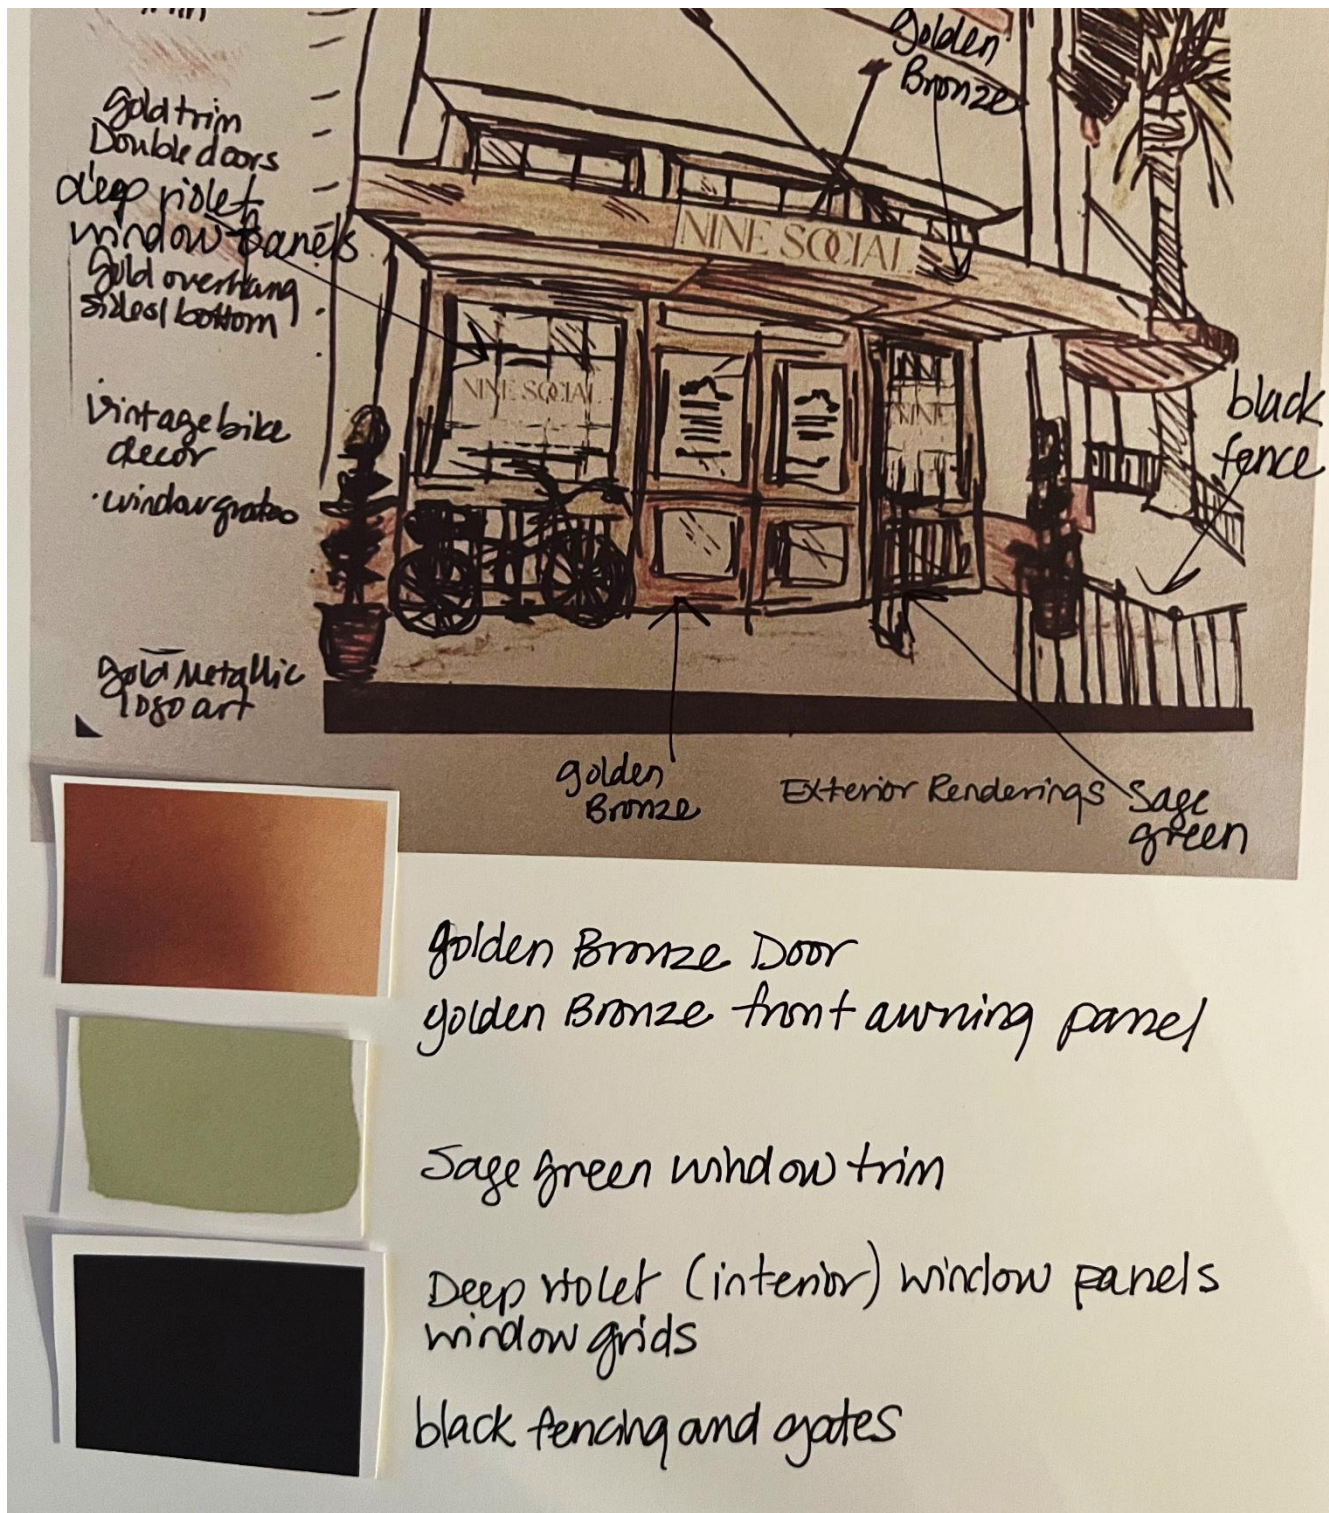 golden
Bronze
gold trim
Double doors
deep violet
window panels
Gold overhang
sides/bottom
NINE SOCIAL
NINE SOCIAL
NINE
black
fence
vintage bike
decor
· window grates
gold Metallic
logo art
golden
Bronze
Exterior Renderings
Sage
green
golden Bronze Door
golden Bronze front awning panel
Sage green window trim
Deep violet (interior) window panels
window grids
black fencing and gates